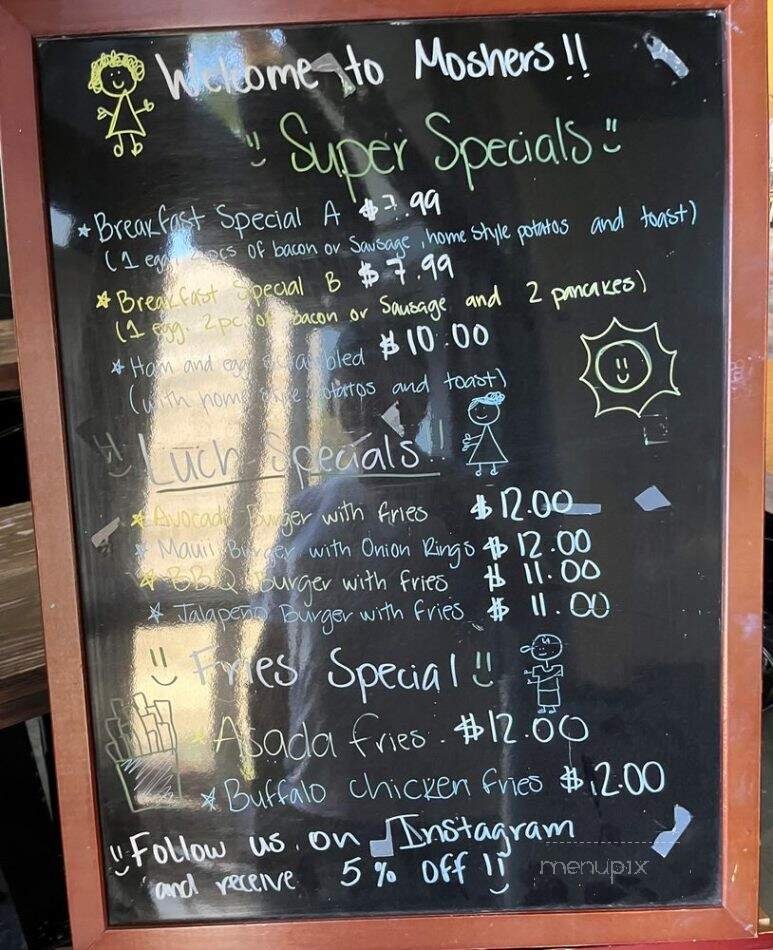 Welcome to Moshers!!
Super Specials
Breakfast Special A $7.99
(1 egg, 2pcs of bacon or Sausage, home style potatos and toast)
Breakfast Special B $7.99
(1 egg. 2pc of bacon or Sausage and 2 pancakes)
Ham and egg scrambled $10.00
(with home style potatos and toast)
Luch Specials
Avocado Burger with fries $12.00
Mauii Burger with Onion Rings $12.00
BBQ Burger with fries $11.00
Jalapeño Burger with fries $11.00
Fries Special
Asada fries. $12.00
Buffalo chicken fries $12.00
Follow us on Instagram
and receive 5% off!!
menupix